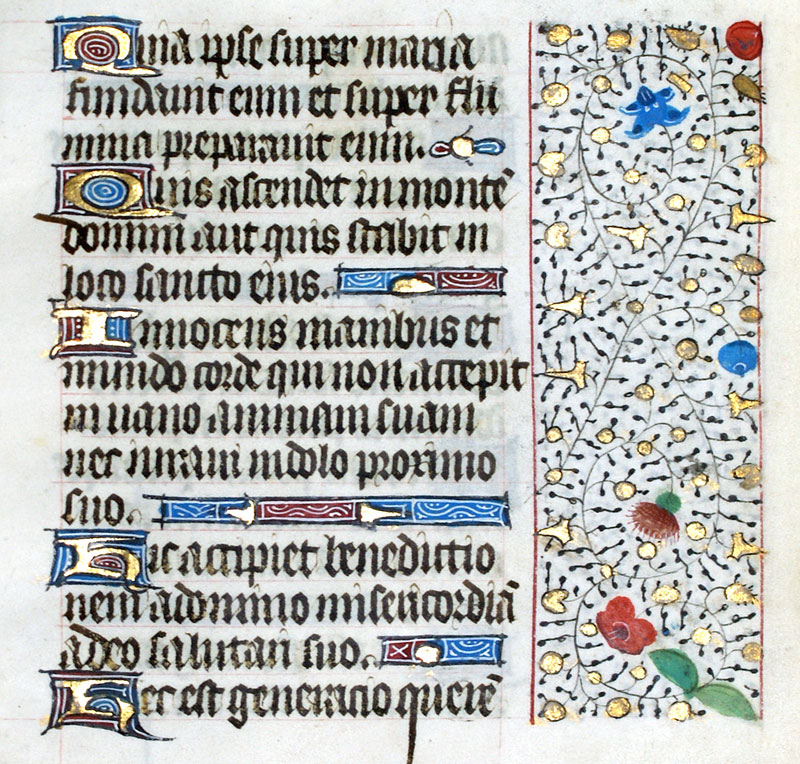 Quia ipse super maria
fundauit eum et super flu
mina preparauit eum.
Quis ascendet in montē
domini aut quis stabit in
loco sancto eius.
Innocens manibus et
mundo corde qui non accepit
in uano animam suam
nec iurauit in dolo proximo
suo.
Hic accipiet benedictio
nem a domino misericordiā
a deo salutari suo.
Hec est generacio querē